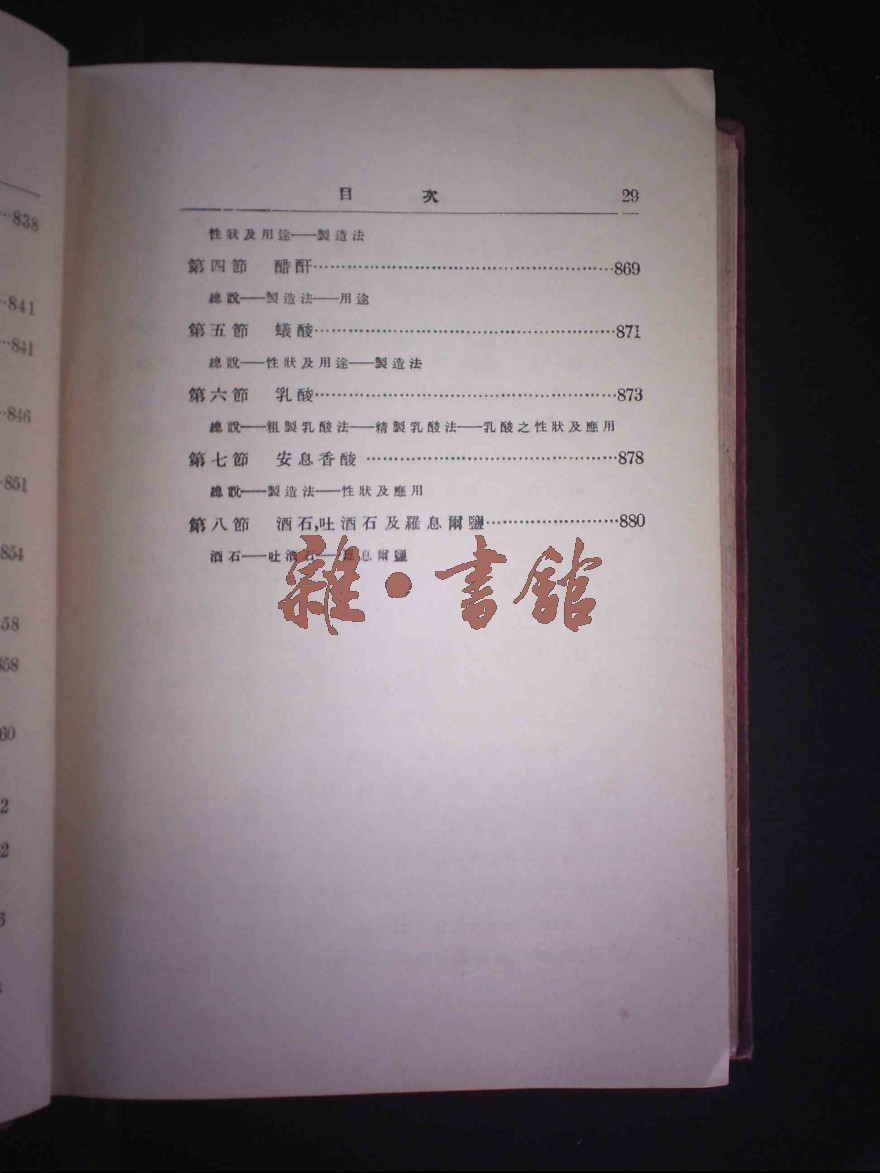 目 次 29
性狀及用途──製造法
第四節 醋酐……………………………………………869
總說──製造法──用途
第五節 蟻酸……………………………………………871
總說──性狀及用途──製造法
第六節 乳酸……………………………………………873
總說──粗製乳酸法──精製乳酸法──乳酸之性狀及應用
第七節 安息香酸……………………………………878
總說──製造法──性狀及應用
第八節 酒石,吐酒石及羅息爾鹽……………………880
酒石──吐酒石──羅息爾鹽
雜·書館
838
841
841
846
851
854
58
858
60
2
2